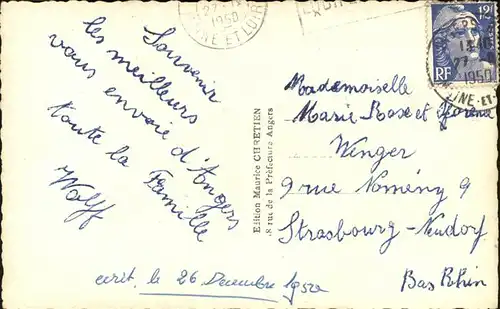 Souvenir
les meilleurs
vous envoie d'Angers
toute la Famille
Wolff
ecrit, le 26 Decembre 1950
Edition Maurice CHRETIEN
8 rue de la Préfecture Angers
27
1950
NE ET LOIR
19F
RF
27
1950
NE-ET-
Mademoiselle
Marie Rose et
Wenger
9 rue Nomény 9
Strasbourg-Neudorf
Bas Rhin